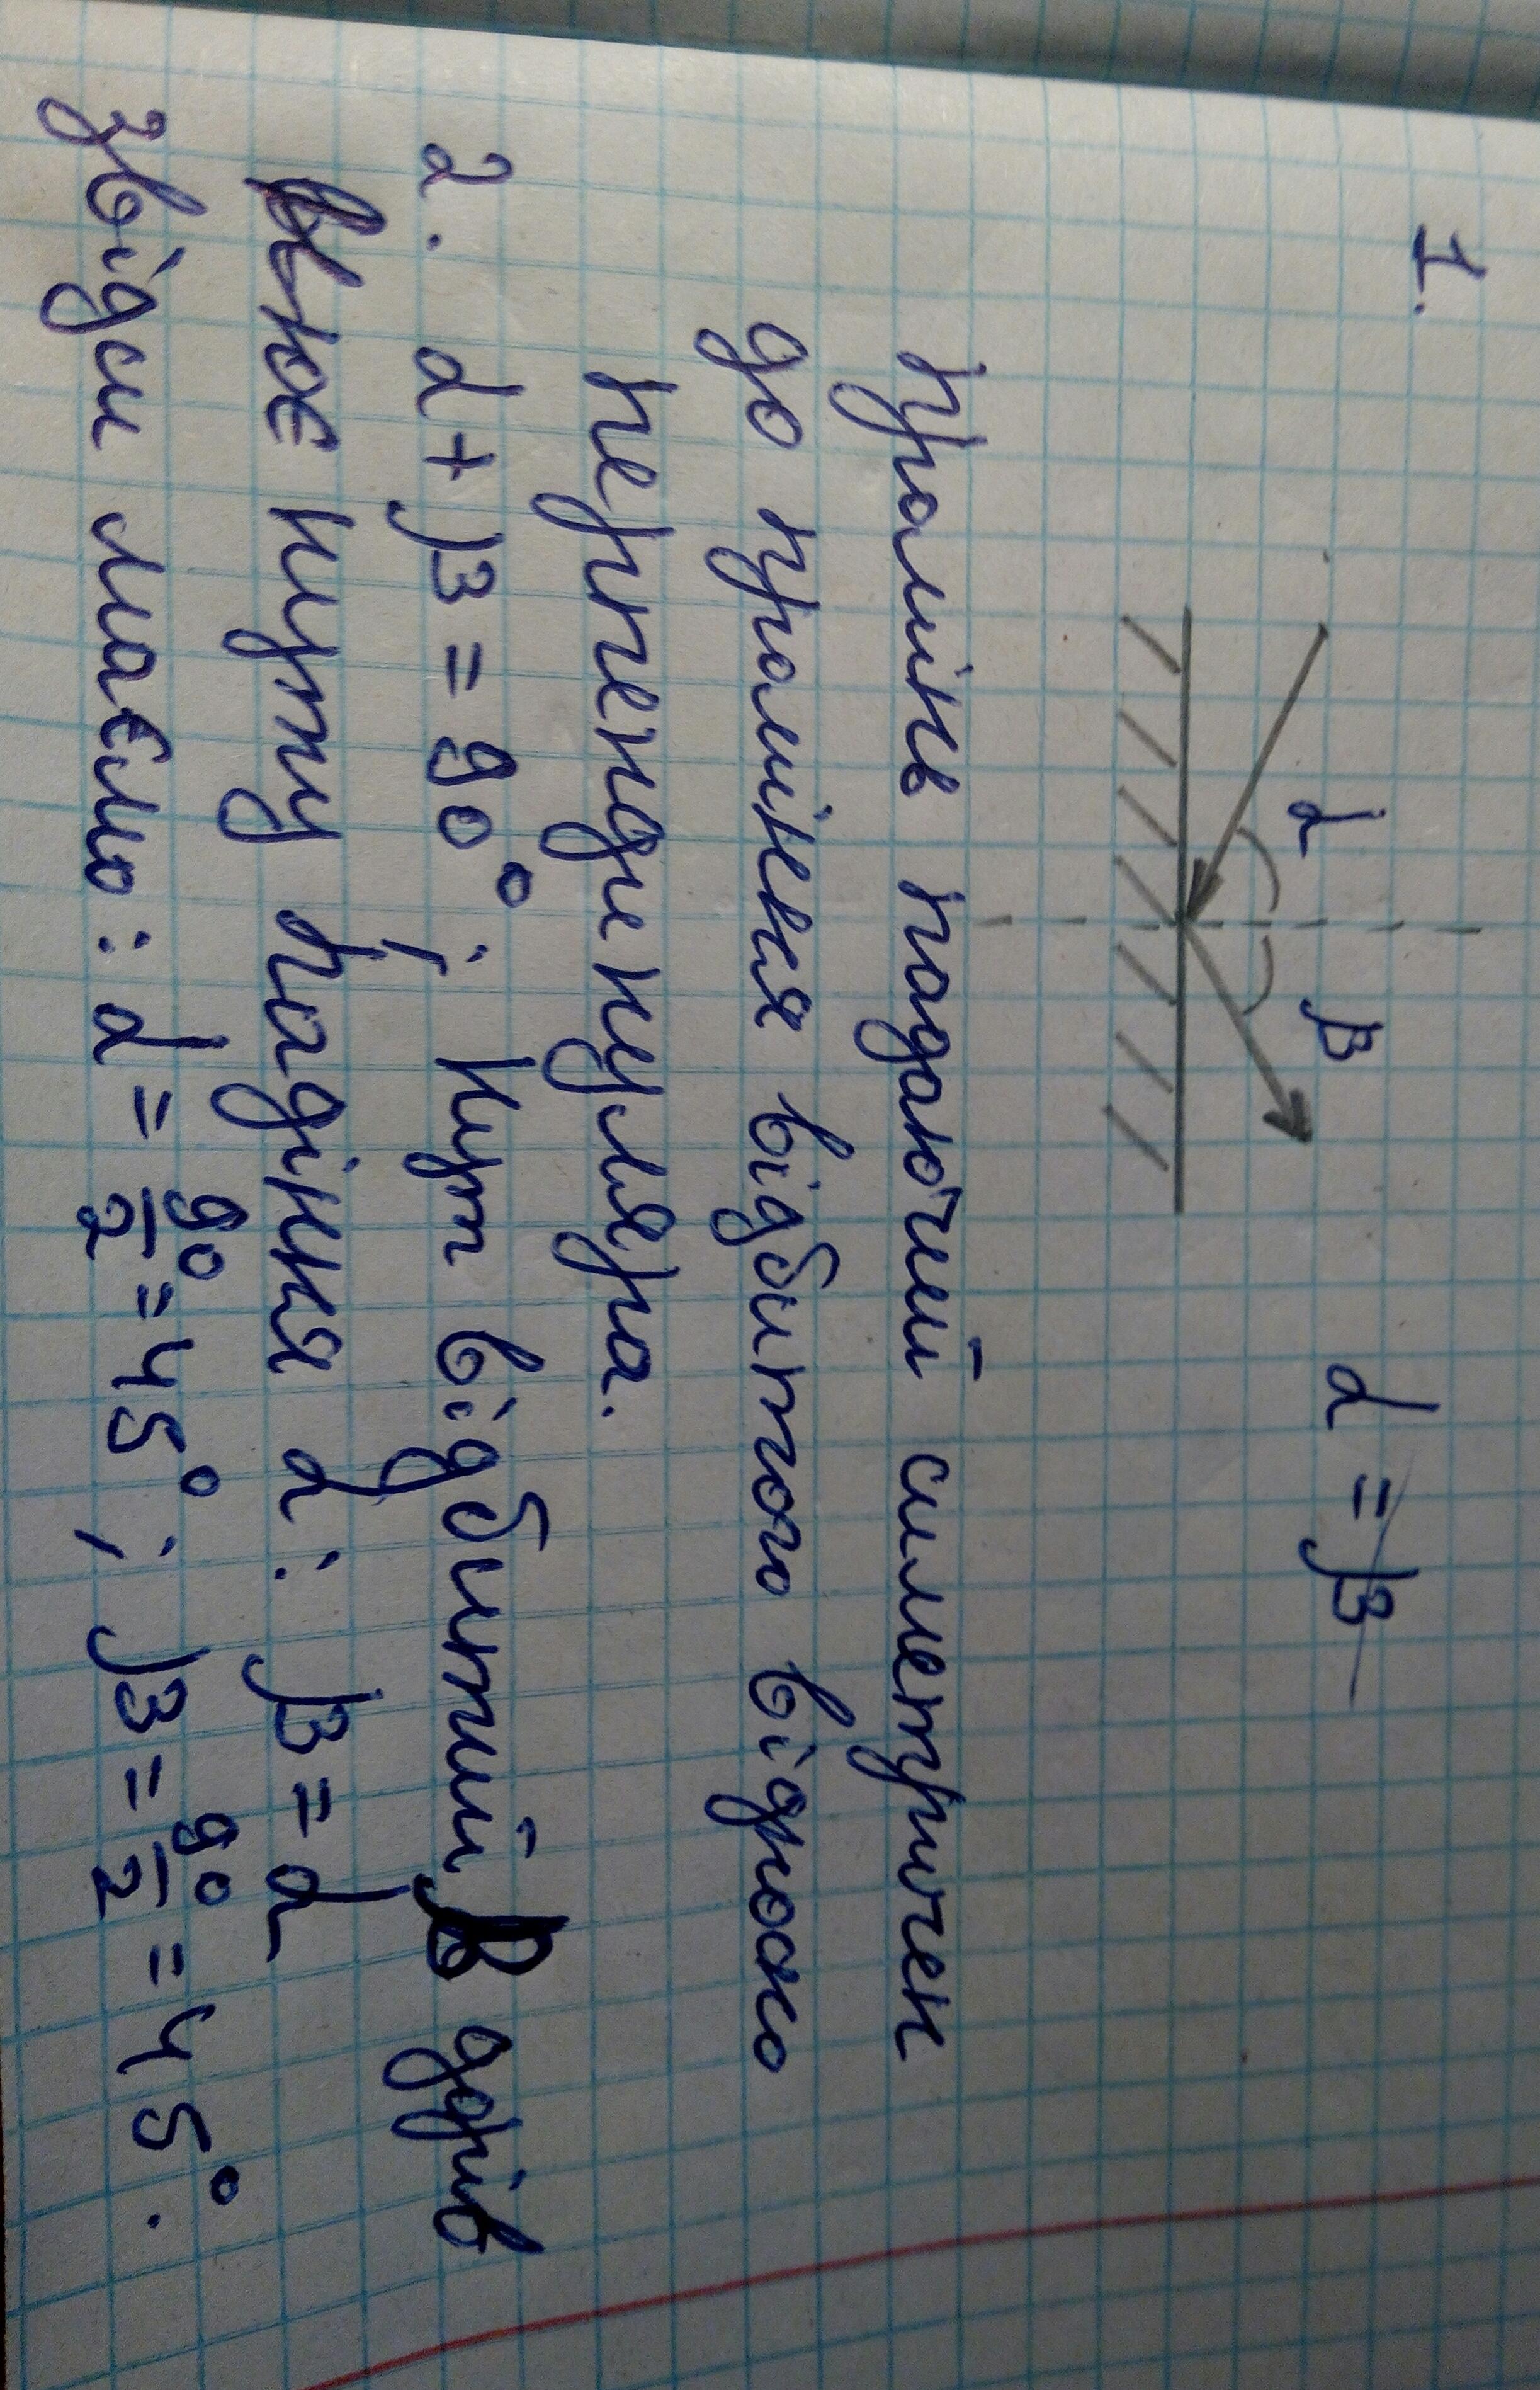 1.
α β α = β
промінь падаючий симетричен
до проміння відбитого відносно
перпендикуляра.
2. α + β = 90°; Кут відбитий β дорів
нює куту падіння α: β = α
Звідси маємо: α = 90/2 = 45°; β = 90/2 = 45°.